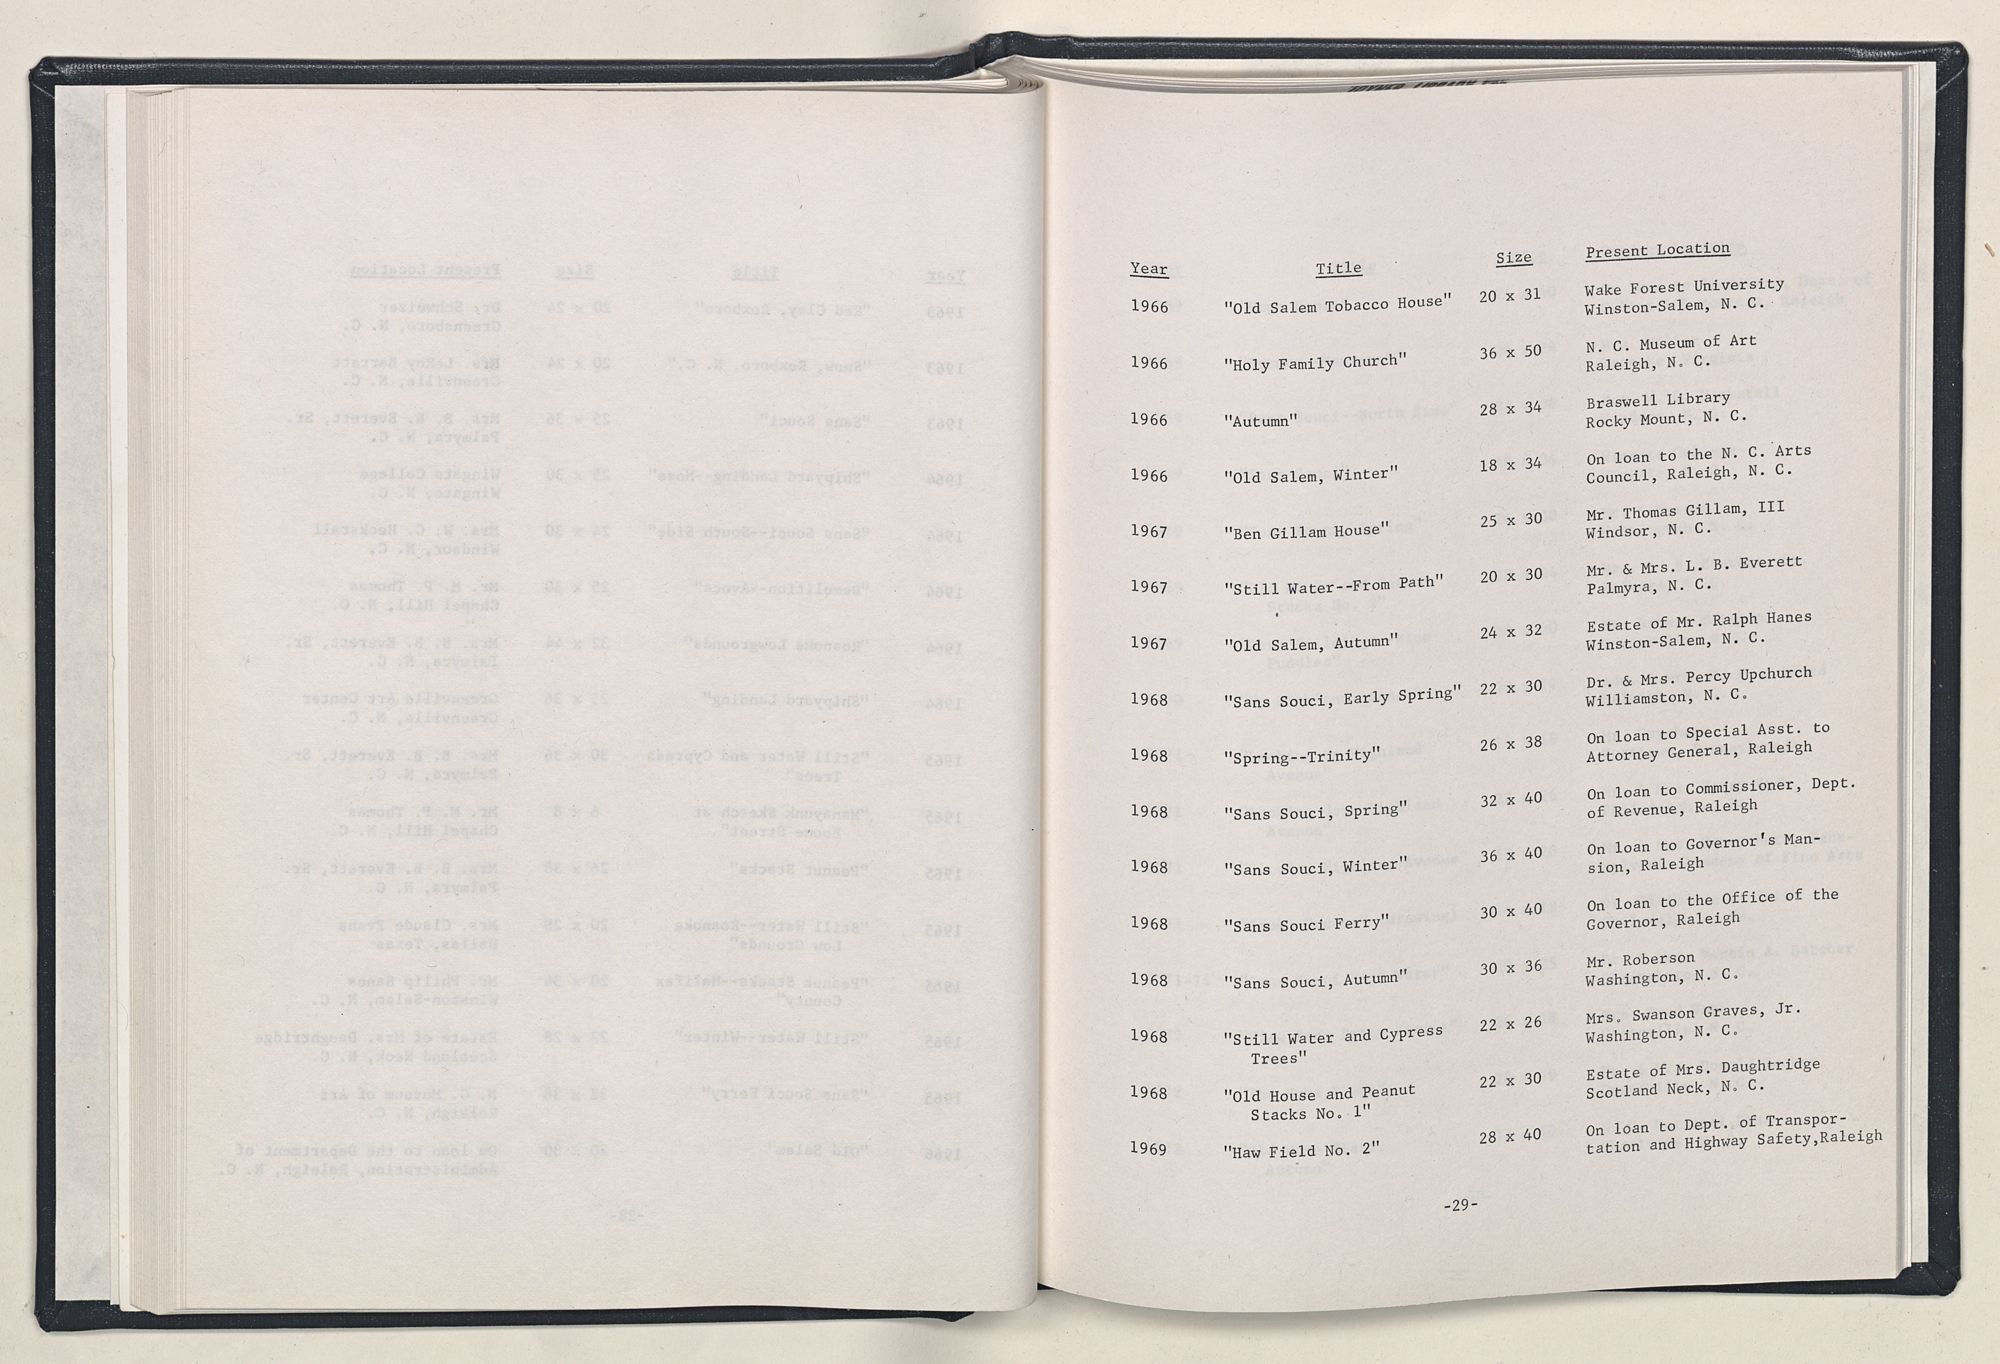 Year Title Size Present Location
1966 "Old Salem Tobacco House" 20 x 31 Wake Forest University
Winston-Salem, N. C.
1966 "Holy Family Church" 36 x 50 N. C. Museum of Art
Raleigh, N. C.
1966 "Autumn" 28 x 34 Braswell Library
Rocky Mount, N. C.
1966 "Old Salem, Winter" 18 x 34 On loan to the N. C. Arts
Council, Raleigh, N. C.
1967 "Ben Gillam House" 25 x 30 Mr. Thomas Gillam, III
Windsor, N. C.
1967 "Still Water--From Path" 20 x 30 Mr. & Mrs. L. B. Everett
Palmyra, N. C.
1967 "Old Salem, Autumn" 24 x 32 Estate of Mr. Ralph Hanes
Winston-Salem, N. C.
1968 "Sans Souci, Early Spring" 22 x 30 Dr. & Mrs. Percy Upchurch
Williamston, N. C.
1968 "Spring--Trinity" 26 x 38 On loan to Special Asst. to
Attorney General, Raleigh
1968 "Sans Souci, Spring" 32 x 40 On loan to Commissioner, Dept.
of Revenue, Raleigh
1968 "Sans Souci, Winter" 36 x 40 On loan to Governor's Man-
sion, Raleigh
1968 "Sans Souci Ferry" 30 x 40 On loan to the Office of the
Governor, Raleigh
1968 "Sans Souci, Autumn" 30 x 36 Mr. Roberson
Washington, N. C.
1968 "Still Water and Cypress 22 x 26 Mrs. Swanson Graves, Jr.
Trees" Washington, N. C.
1968 "Old House and Peanut 22 x 30 Estate of Mrs. Daughtridge
Stacks No. 1" Scotland Neck, N. C.
1969 "Haw Field No. 2" 28 x 40 On loan to Dept. of Transpor-
tation and Highway Safety,Raleigh
-29-